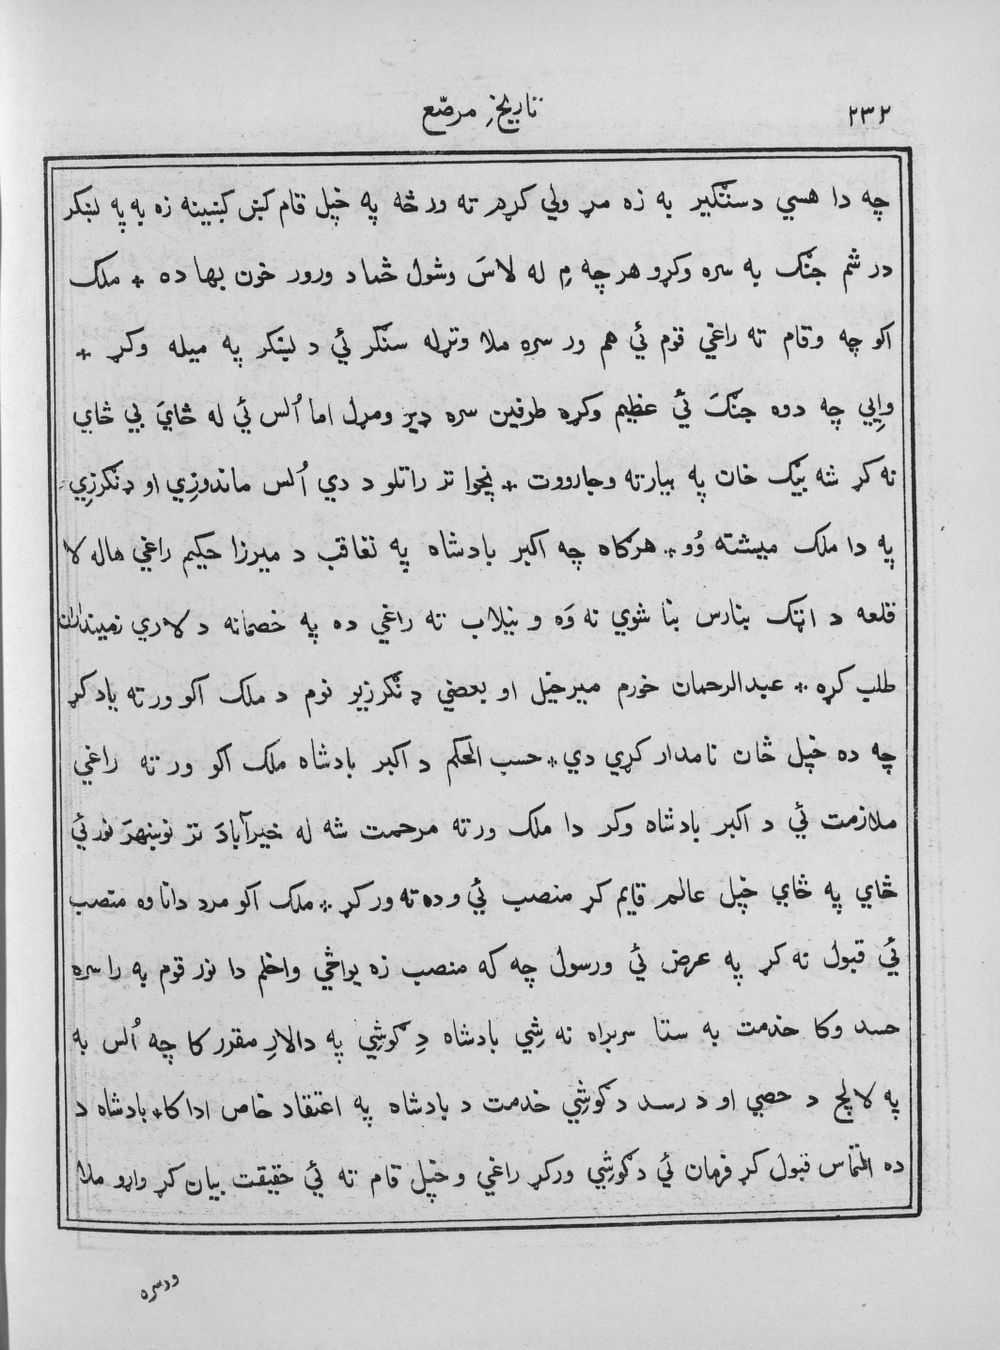 ۲۳۲
تاریخِ مرصّع
چه دا هسي دستګیر به زه مړ ولي کړم ته ورځه په خپل قام کښ کښینه زه به په لښکر
درشم جنګ به سره وکړو هر چه مِ له لاسَ وشول ځما د ورور خون بها ده * ملک
اکو چه وقام ته راغي قوم ئي هم ورسره ملا وتړله سنګر ئي د لښکر په میله وکړ *
وایي چه دوه جنګَ ئي عظیم وکړه طرفین سره ډیر ومړل اما اُلس ئي له ځايَ بي ځاي
نه کړ شه بیګ خان په بیارته وجاروت * پنجوا تر راتلو د دي اُلس ماندوزِي او ډنګرزِي
په دا ملک میشته وُو * هرګاه چه اکبر بادشاه په تعاقب د میرزا حکیم راغي هاله لا
قلعه د اټک بنارس بنا شوي نه وَه و نیلاب ته راغي ده په خصمانه د لاري زمینداران
طلب کړه * عبدالرحمان خورم میرخیل او بعضي ډنګرزیو نوم د ملک اکو ورته یاد کړ
چه ده خپل ځان نامدار کړي دي * حسب الحکم د اکبر بادشاه ملک اکو ورته راغي
ملازمت ئي د اکبر بادشاه وکړ دا ملک ورته مرحمت شه له خیرآبادَ تر نوښهرَ نور ئي
ځاي په ځاي خپل عالم قایم کړ منصب ئي وده ته ورکړ * ملک اکو مرد دانا وه منصب
ئي قبول نه کړ په عرض ئي ورسول چه که منصب زه یواځي واخلم دا نور قوم به راسره
حسد وکا خدمت به ستا سربراه نه شِي بادشاه دِ ګوشِي په دالارِ مقرر کا چه اُلس به
په لالچ د حصي او د رسد د ګوشِي خدمت د بادشاه په اعتقاد خاص ادا کا * بادشاه د
ده التماس قبول کړ فرمان ئي د ګوشِي ورکړ راغي و خپل قام ته ئي حقیقت بیان کړ واړو ملا
ورسره